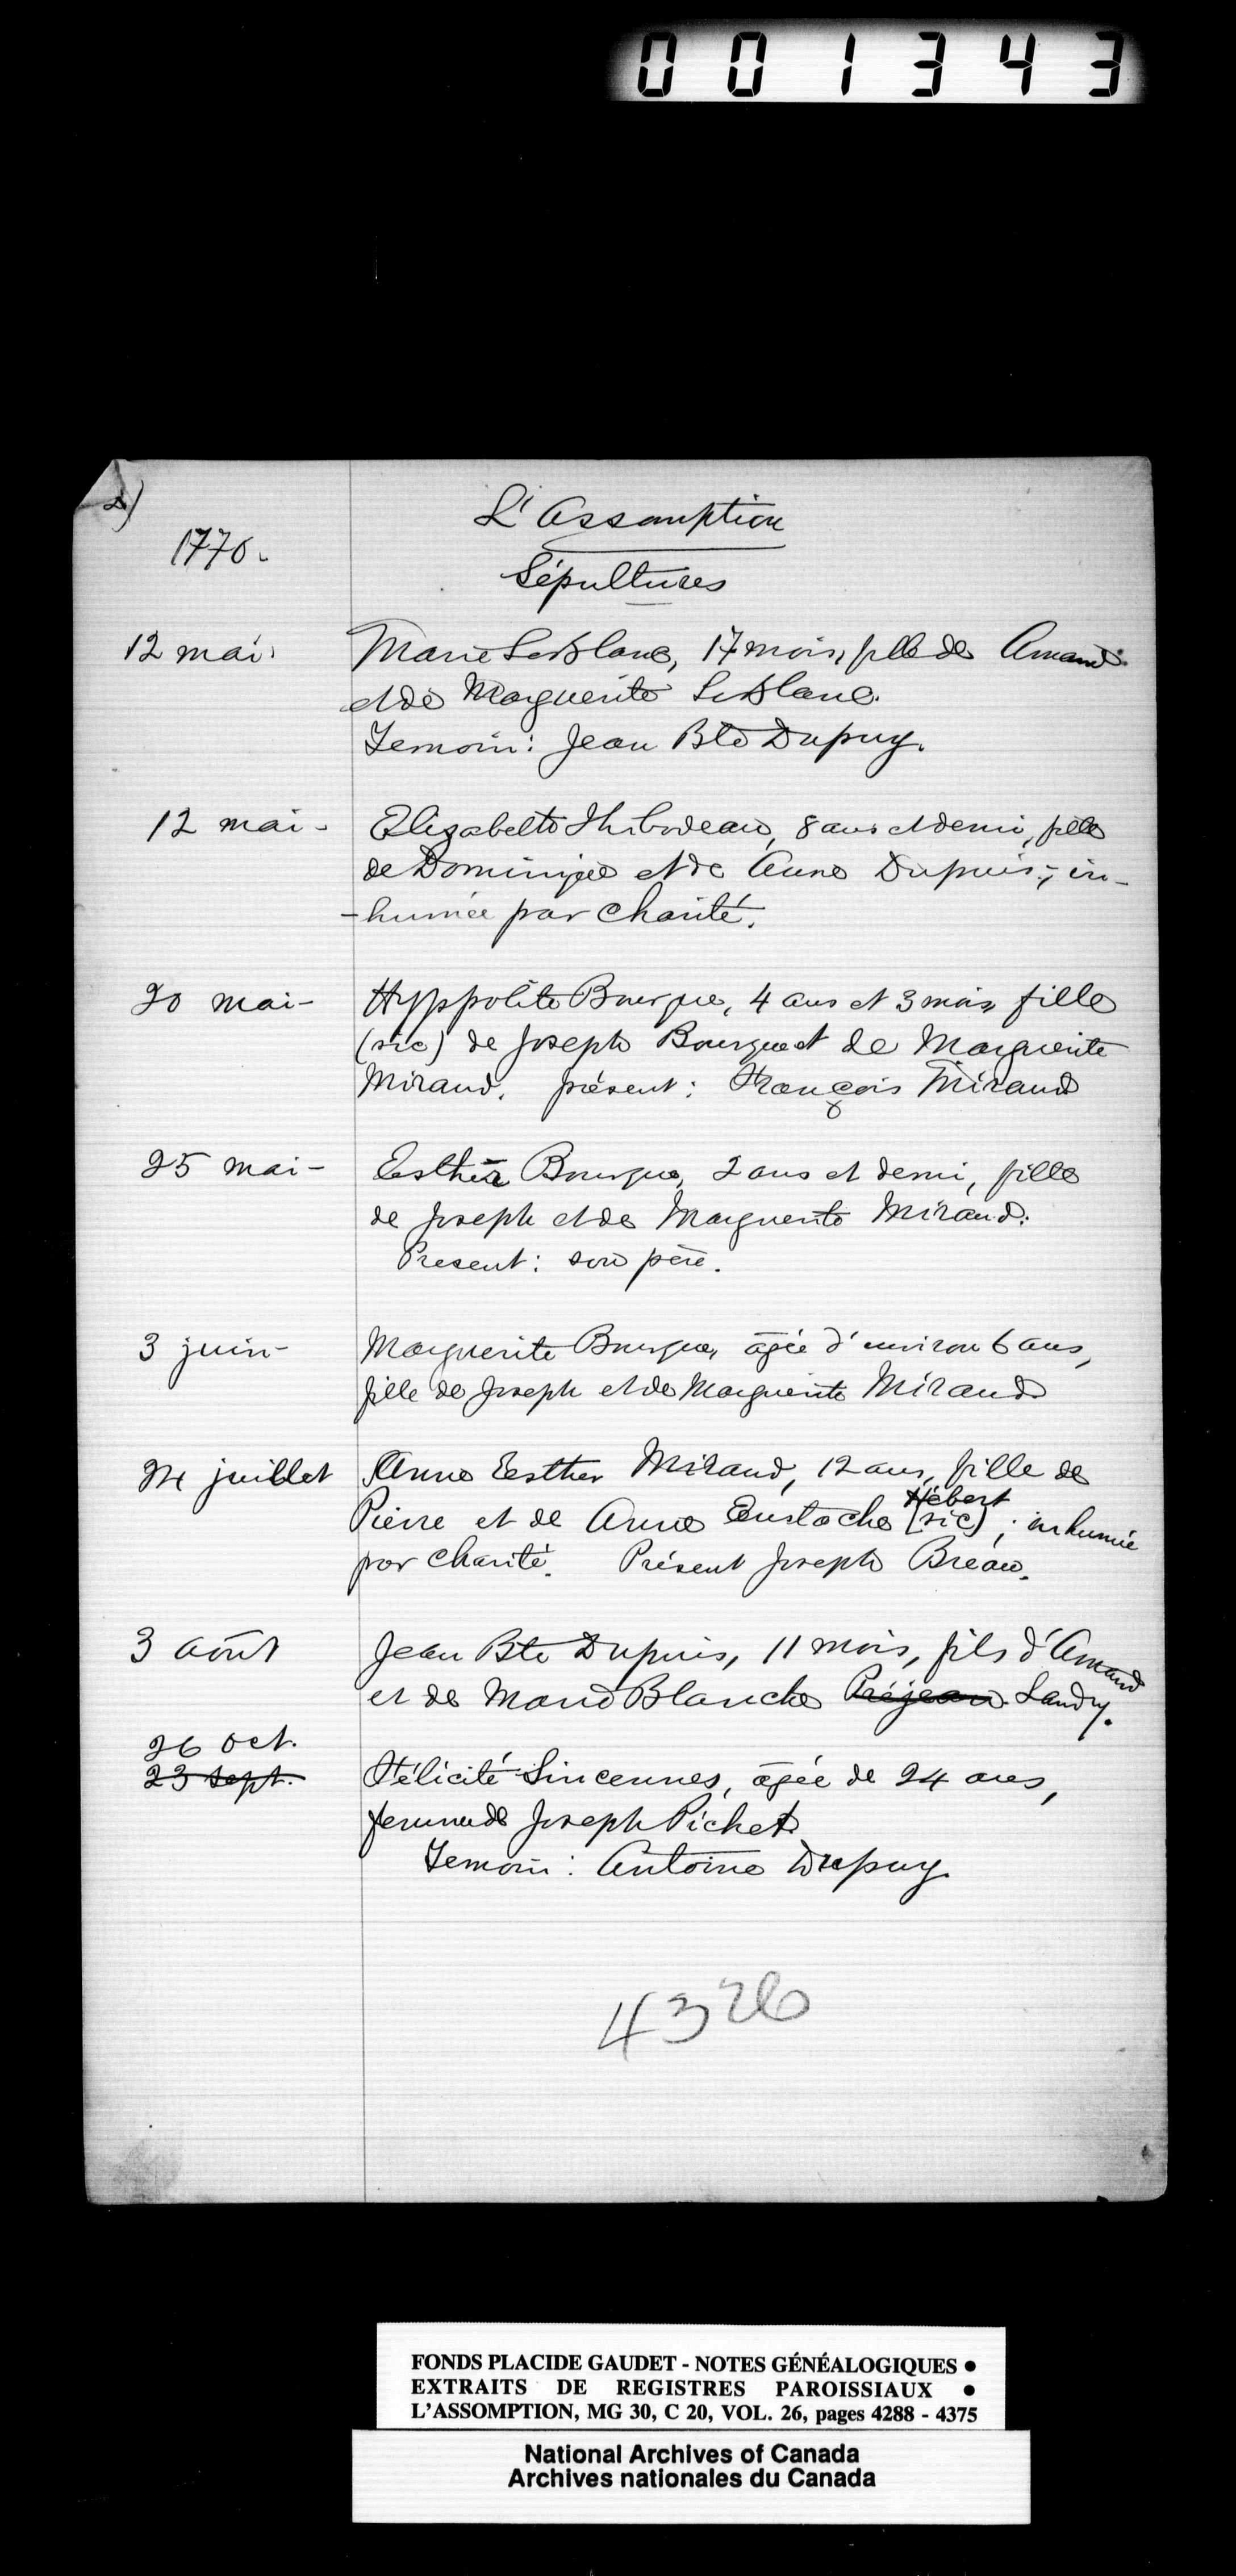 001343
2)
L'Assomption
1770.
Sépultures
12 mai. Marie LeBlanc, 17 mois, fille de Amand
et de Marguerite LeBlanc.
Temoin: Jean Bte Dupuy.
12 mai - Elizabelte Thibodeau, 8 ans et demi, fille
de Dominique et de Anne Dupuis; in-
-humée par charité.
20 mai - Hyppolite Bourque, 4 ans et 3 mois, fille
(sic) de Joseph Bourque et de Marguerite
Mirand. présent: François Mirand
25 mai - Esther Bourque, 2 ans et demi, fille
de Joseph et de Marguerite Mirand.
Present: son père.
3 juin - Marguerite Bourque, agée d'environ 6 ans,
fille de Joseph et de Marguerite Mirand
24 juillet Anne Esther Mirand, 12 ans, fille de
Hébert
Pierre et de Anne Eustache (sic); inhumée
par charité. Présent Joseph Breau.
3 août Jean Bte Dupuis, 11 mois, fils d'Amand
et de Marie Blanche Préjean Landry.
26 oct.
23 sept. Félicité Sincennes, agée de 24 ans,
femme de Joseph Pichet
Temoin: Antoine Dupuy.
4326
FONDS PLACIDE GAUDET - NOTES GÉNÉALOGIQUES •
EXTRAITS DE REGISTRES PAROISSIAUX •
L'ASSOMPTION, MG 30, C 20, VOL. 26, pages 4288 - 4375
National Archives of Canada
Archives nationales du Canada